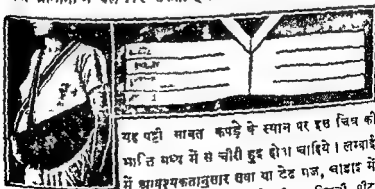 यह पट्टी साबत कपड़े के स्थान पर इस चित्र की
भाति मध्य में से चीरी हुइ होना चाहिये । लम्बाई
में आवश्यकतानुसार सवा या टेड गज, चाडाइ में